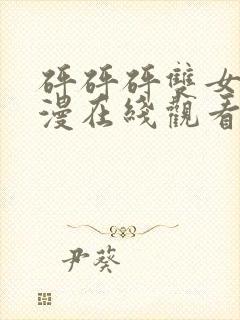 砰砰砰雙女
漫在綫觀看
尹葵